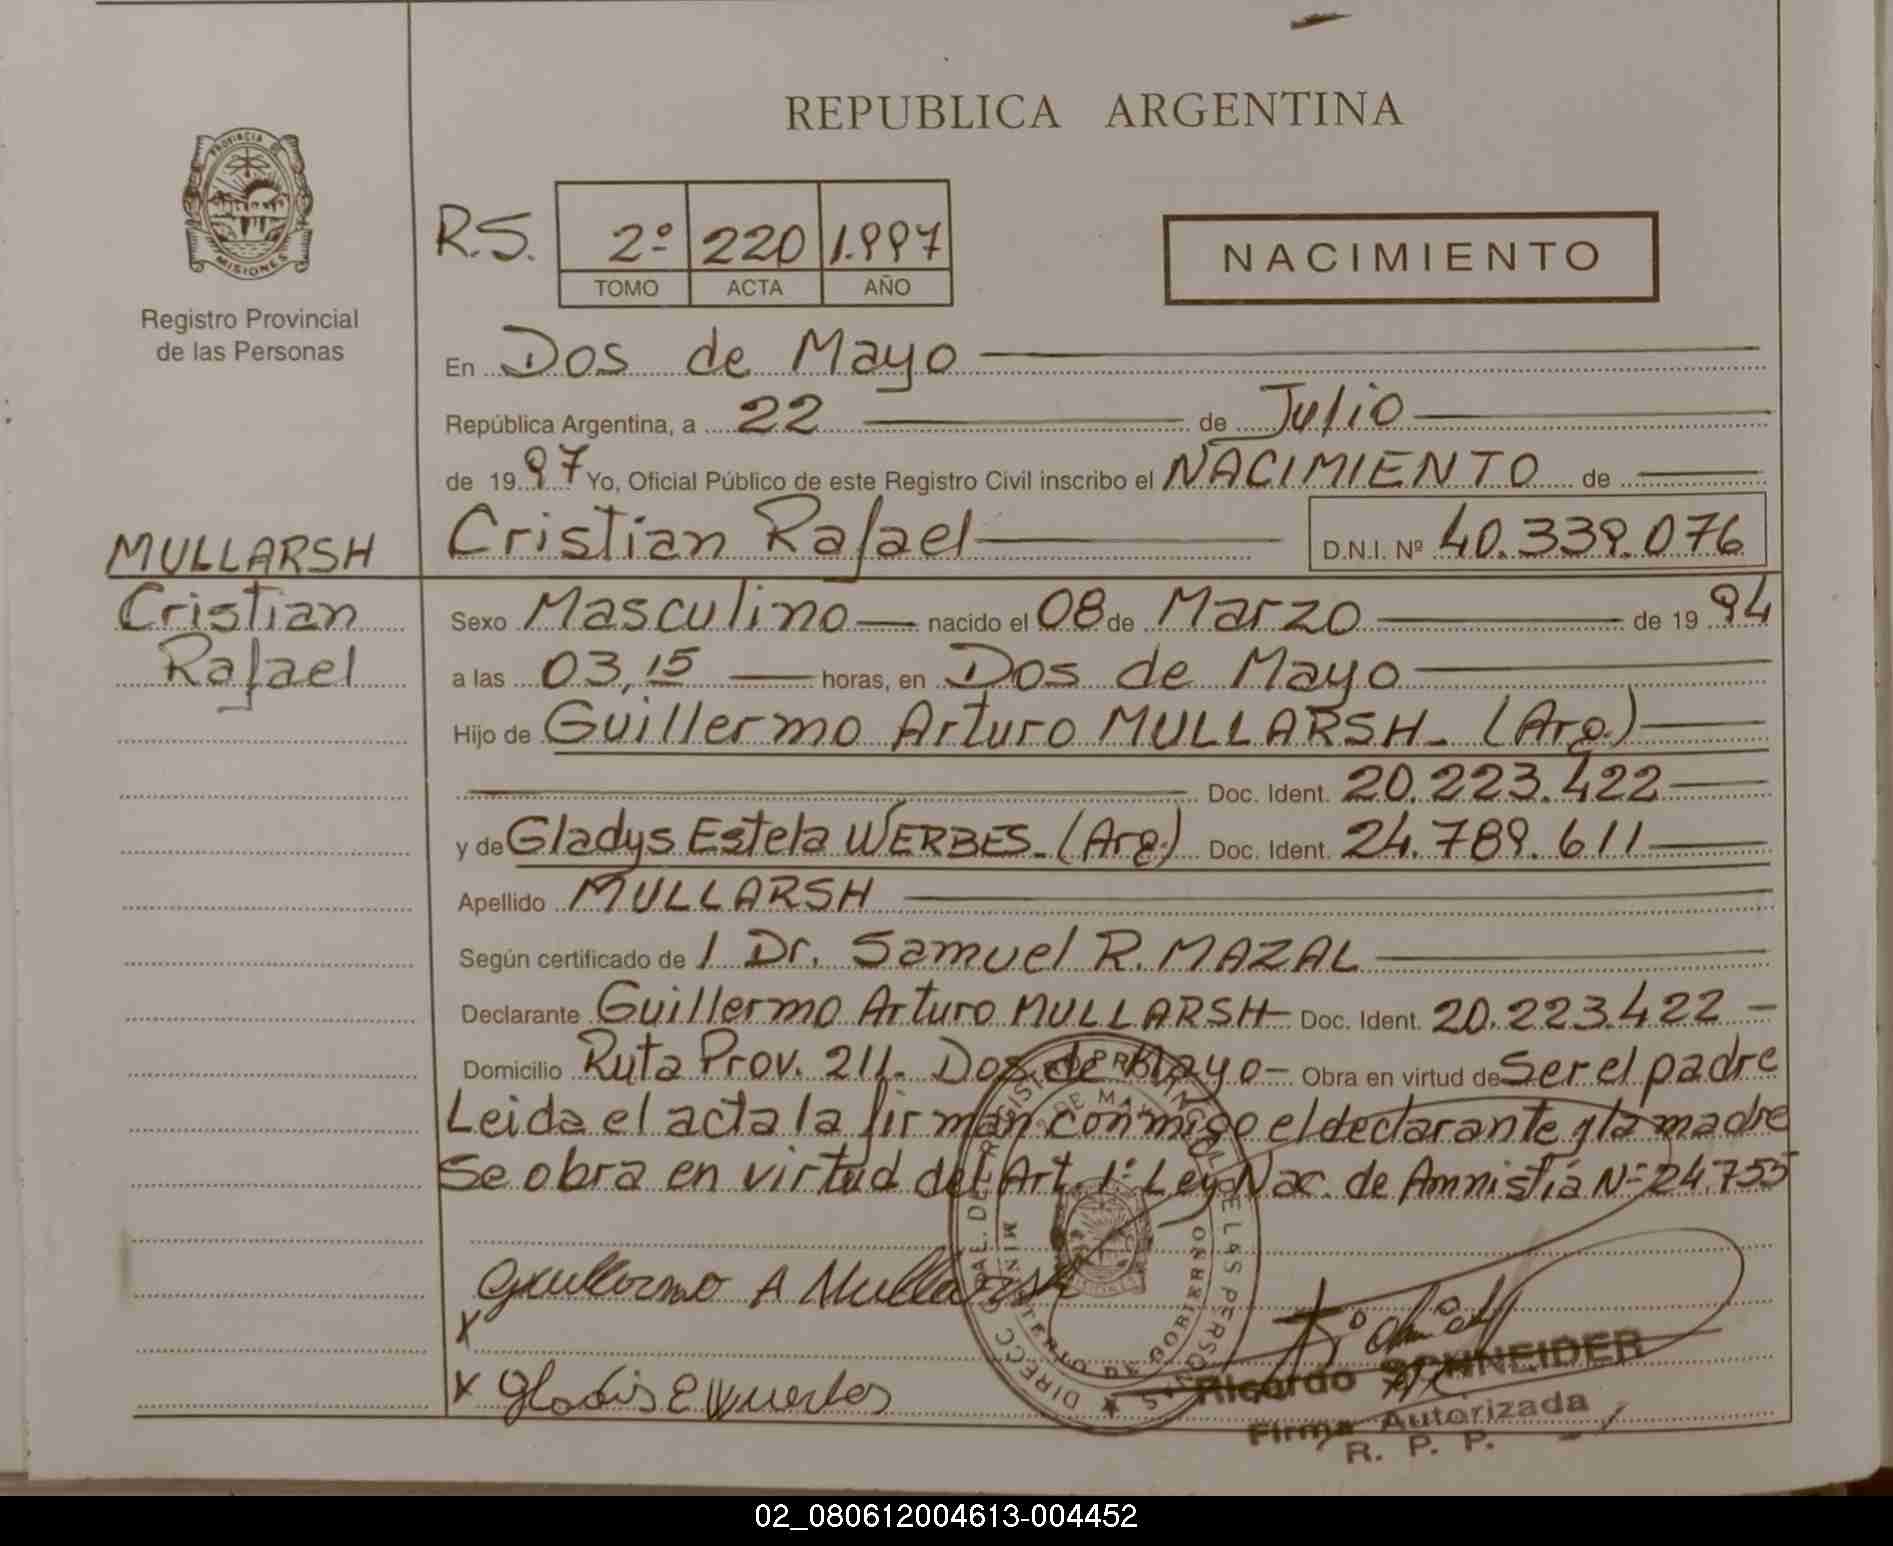 REPUBLICA ARGENTINA
PROVINCIA DE
MISIONES
Registro Provincial
de las Personas
R.S. 2º 220 1.997
TOMO ACTA AÑO
NACIMIENTO
En Dos de Mayo
República Argentina, a 22 de Julio
de 1997 Yo, Oficial Público de este Registro Civil inscribo el NACIMIENTO de
Cristian Rafael D.N.I. Nº 40.339.076
MULLARSH
Cristian
Rafael
Sexo Masculino nacido el 08 de Marzo de 1994
a las 03,15 horas, en Dos de Mayo
Hijo de Guillermo Arturo MULLARSH (Arg.)
Doc. Ident. 20.223.422
y de Gladys Estela WERBES (Arg.) Doc. Ident. 24.789.611
Apellido MULLARSH
Según certificado de 1 Dr. Samuel R. MAZAL
Declarante Guillermo Arturo MULLARSH Doc. Ident. 20.223.422
Domicilio Ruta Prov. 211. Dos de Mayo Obra en virtud de Ser el padre
Leida el acta la firman conmigo el declarante y la madre
Se obra en virtud del Art. 1º Ley Nac. de Amnistía Nº 24.755
Guillermo A Mullarsh
X
X Gladis E Wuerbes
Ricardo SCHNEIDER
Firma Autorizada
R. P. P.
02_080612004613-004452